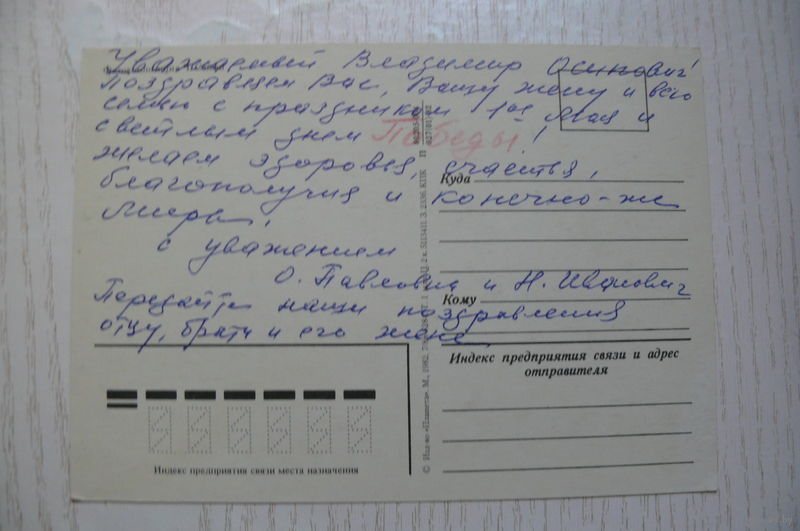 Уважаемый Владимир Осипович!
Поздравляем Вас, Вашу жену и всю
семью с праздником 1ое Мая и
светлым днем Победы!
желаем здоровья, счастья,
благополучия и конечно-же
мира.
с уважением
О. Павловна и Н. Иванович
Передайте наши поздравления
отцу, брату и его жене.
Куда
Кому
Индекс предприятия связи и адрес
отправителя
Индекс предприятия связи места назначения
© Изд-во «Планета». М., 1982.